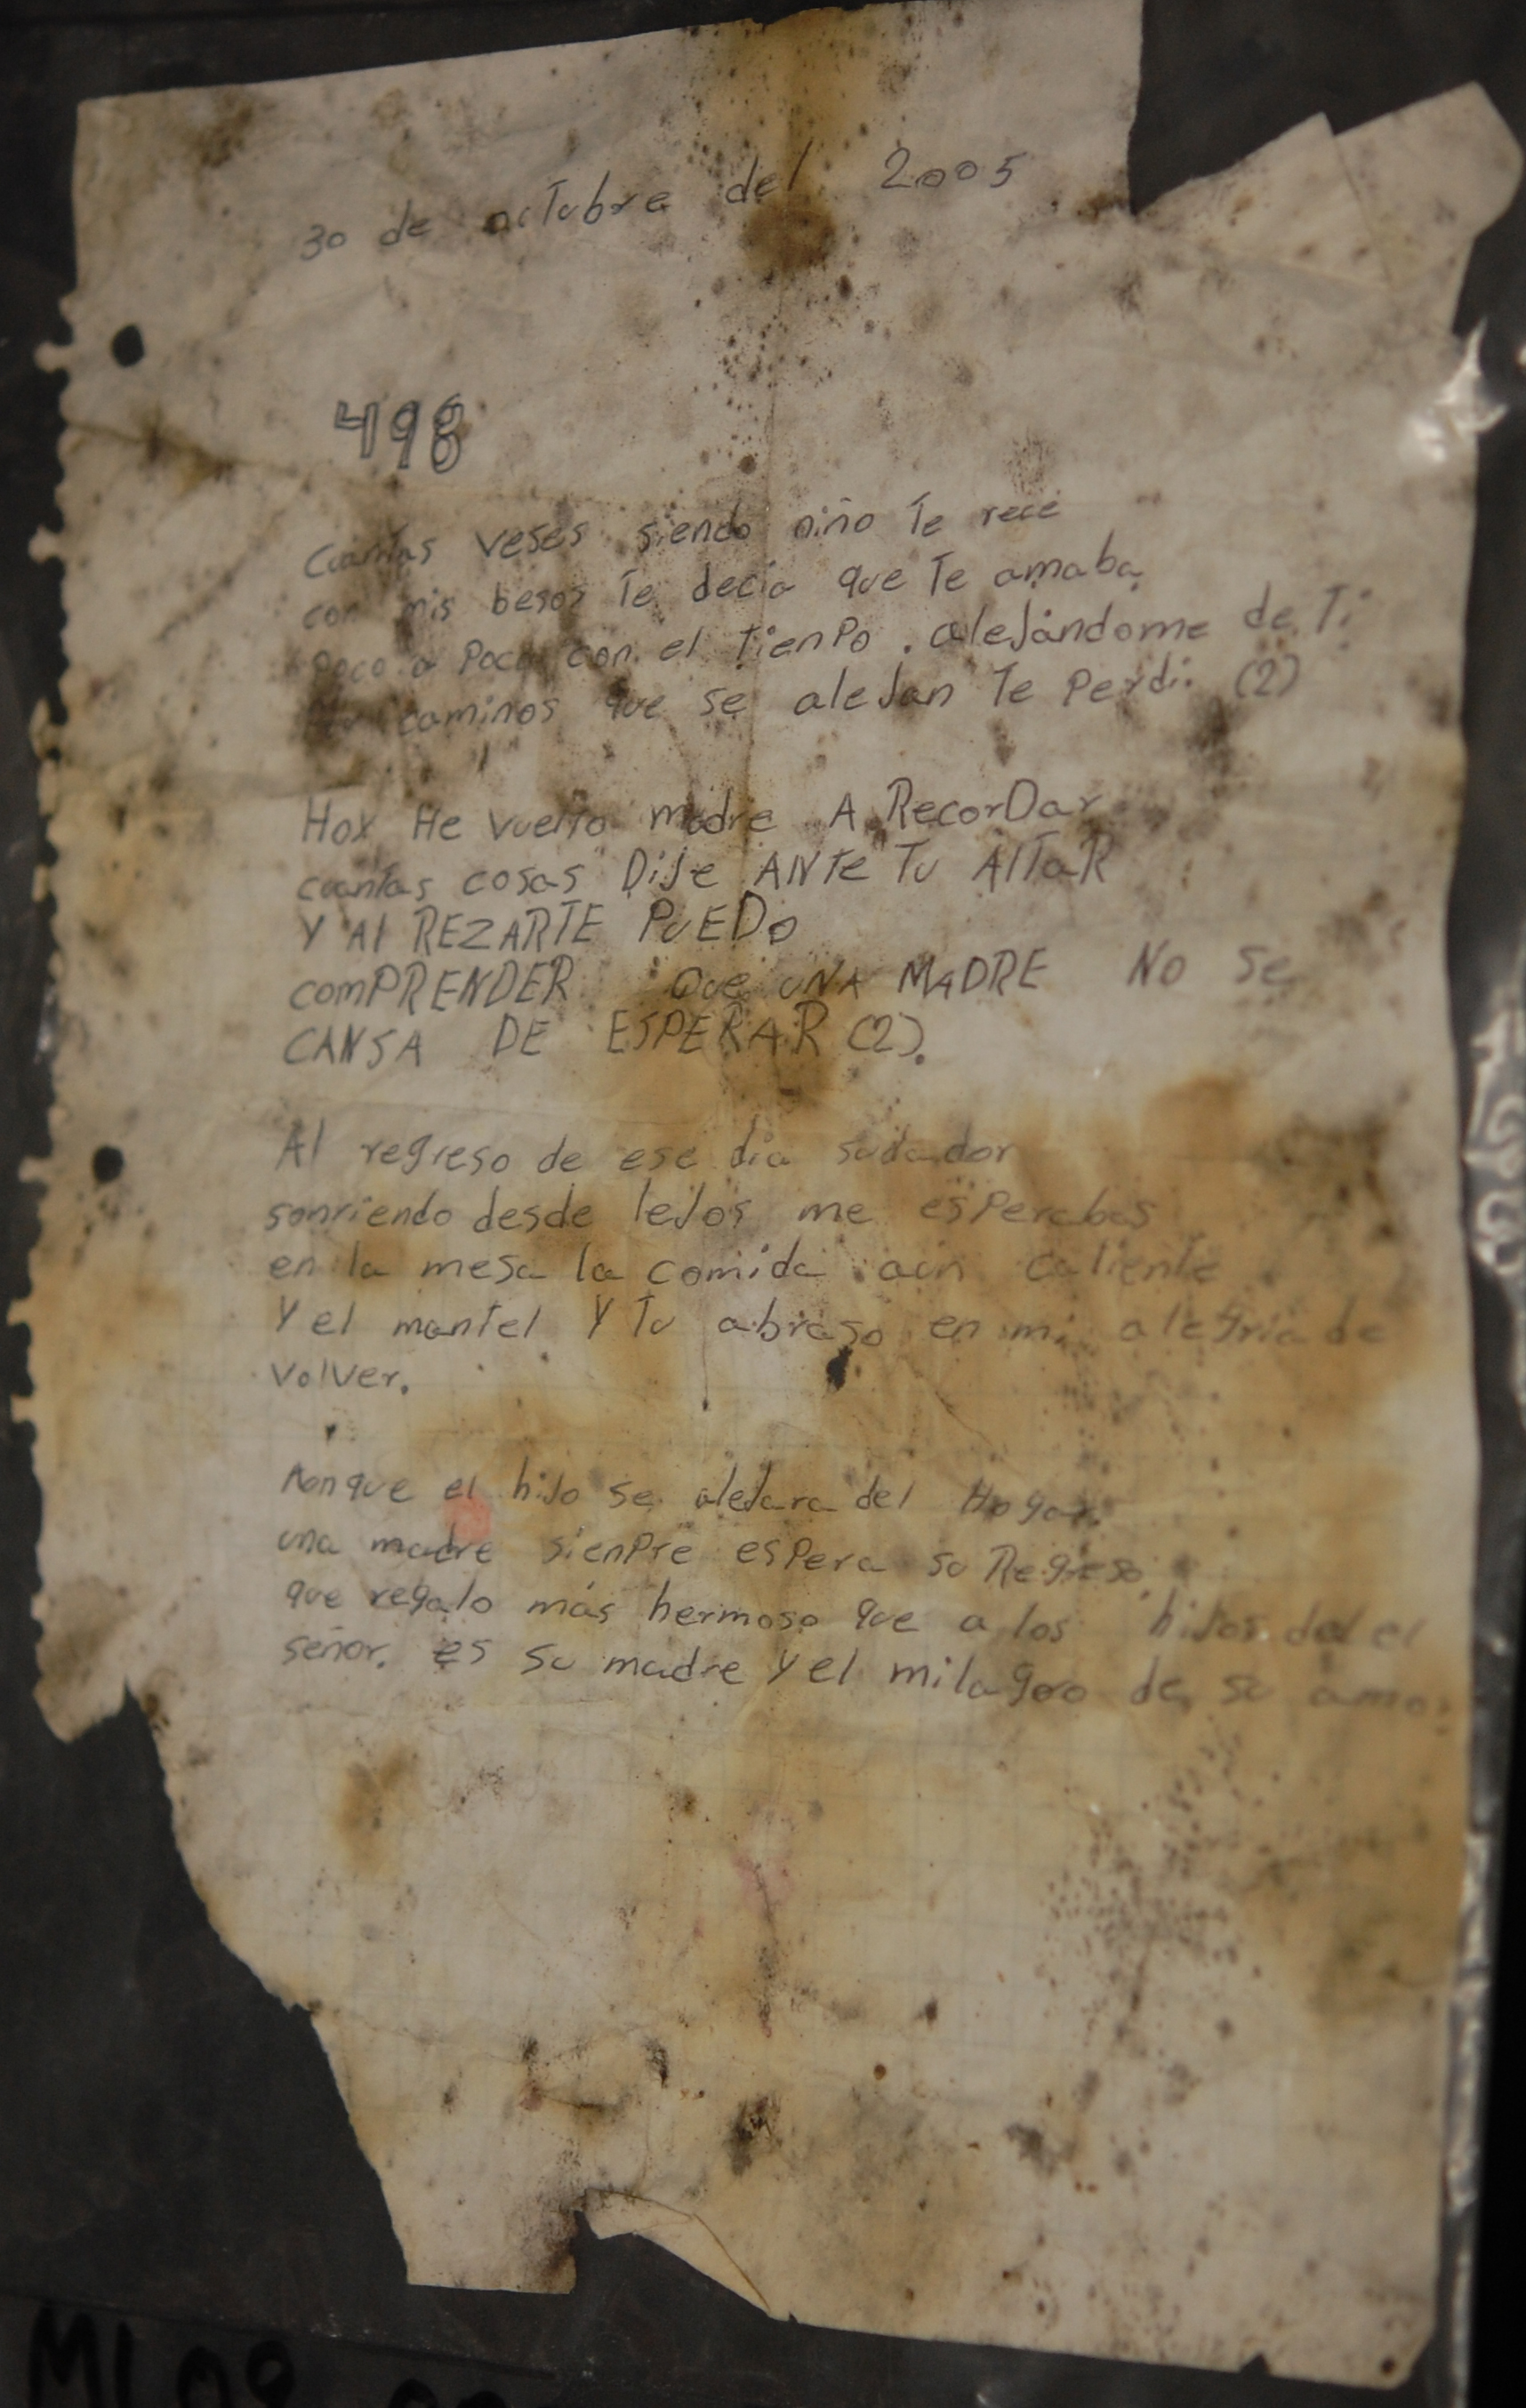 30 de octubre del 2005
498
Cuantas veses siendo niño te recé
con mis besos te decía que te amaba
Poco a Poco con el tienPo. aleJándome de Ti
caminos que se aleJan Te Perdi (2)
Hoy He vuelto madre A RecorDar
cuantas cosas DiJe ANte Tu AlTaR
Y Al REZARTE PUEDo
comPRENDER Que UNA MADRE NO Se
CANSA DE ESPERAR (2).
Al regreso de ese dia
sonriendo desde leJos me esPerabas
en la mesa la comida aún caliente
Y el mantel Y Tu abraso en mi alegria de
volver.
Aunque el hiJo se aleJara del Hogar.
una madre sienPre esPera su Regreso
que regalo más hermoso que a los hiJos del el
señor. es su madre Y el milagoro de su amor